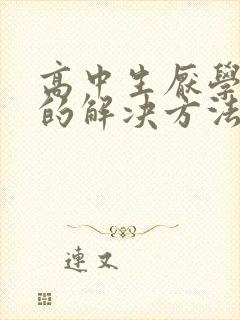 高中生厭學
的解决方法
連又